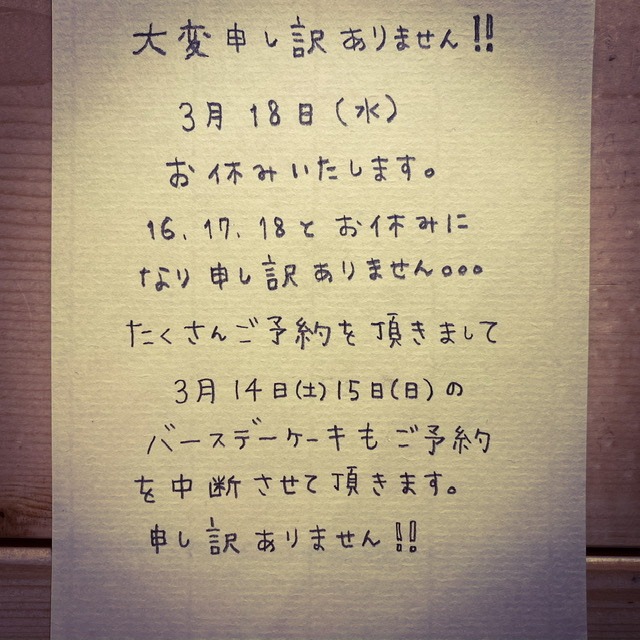 大変申し訳ありません!!
3月18日(水)
お休みいたします。
16.17.18とお休みに
なり申し訳ありません。。。
たくさんご予約を頂きまして
3月14日(土)15日(日)の
バースデーケーキもご予約
を中断させて頂きます。
申し訳ありません!!